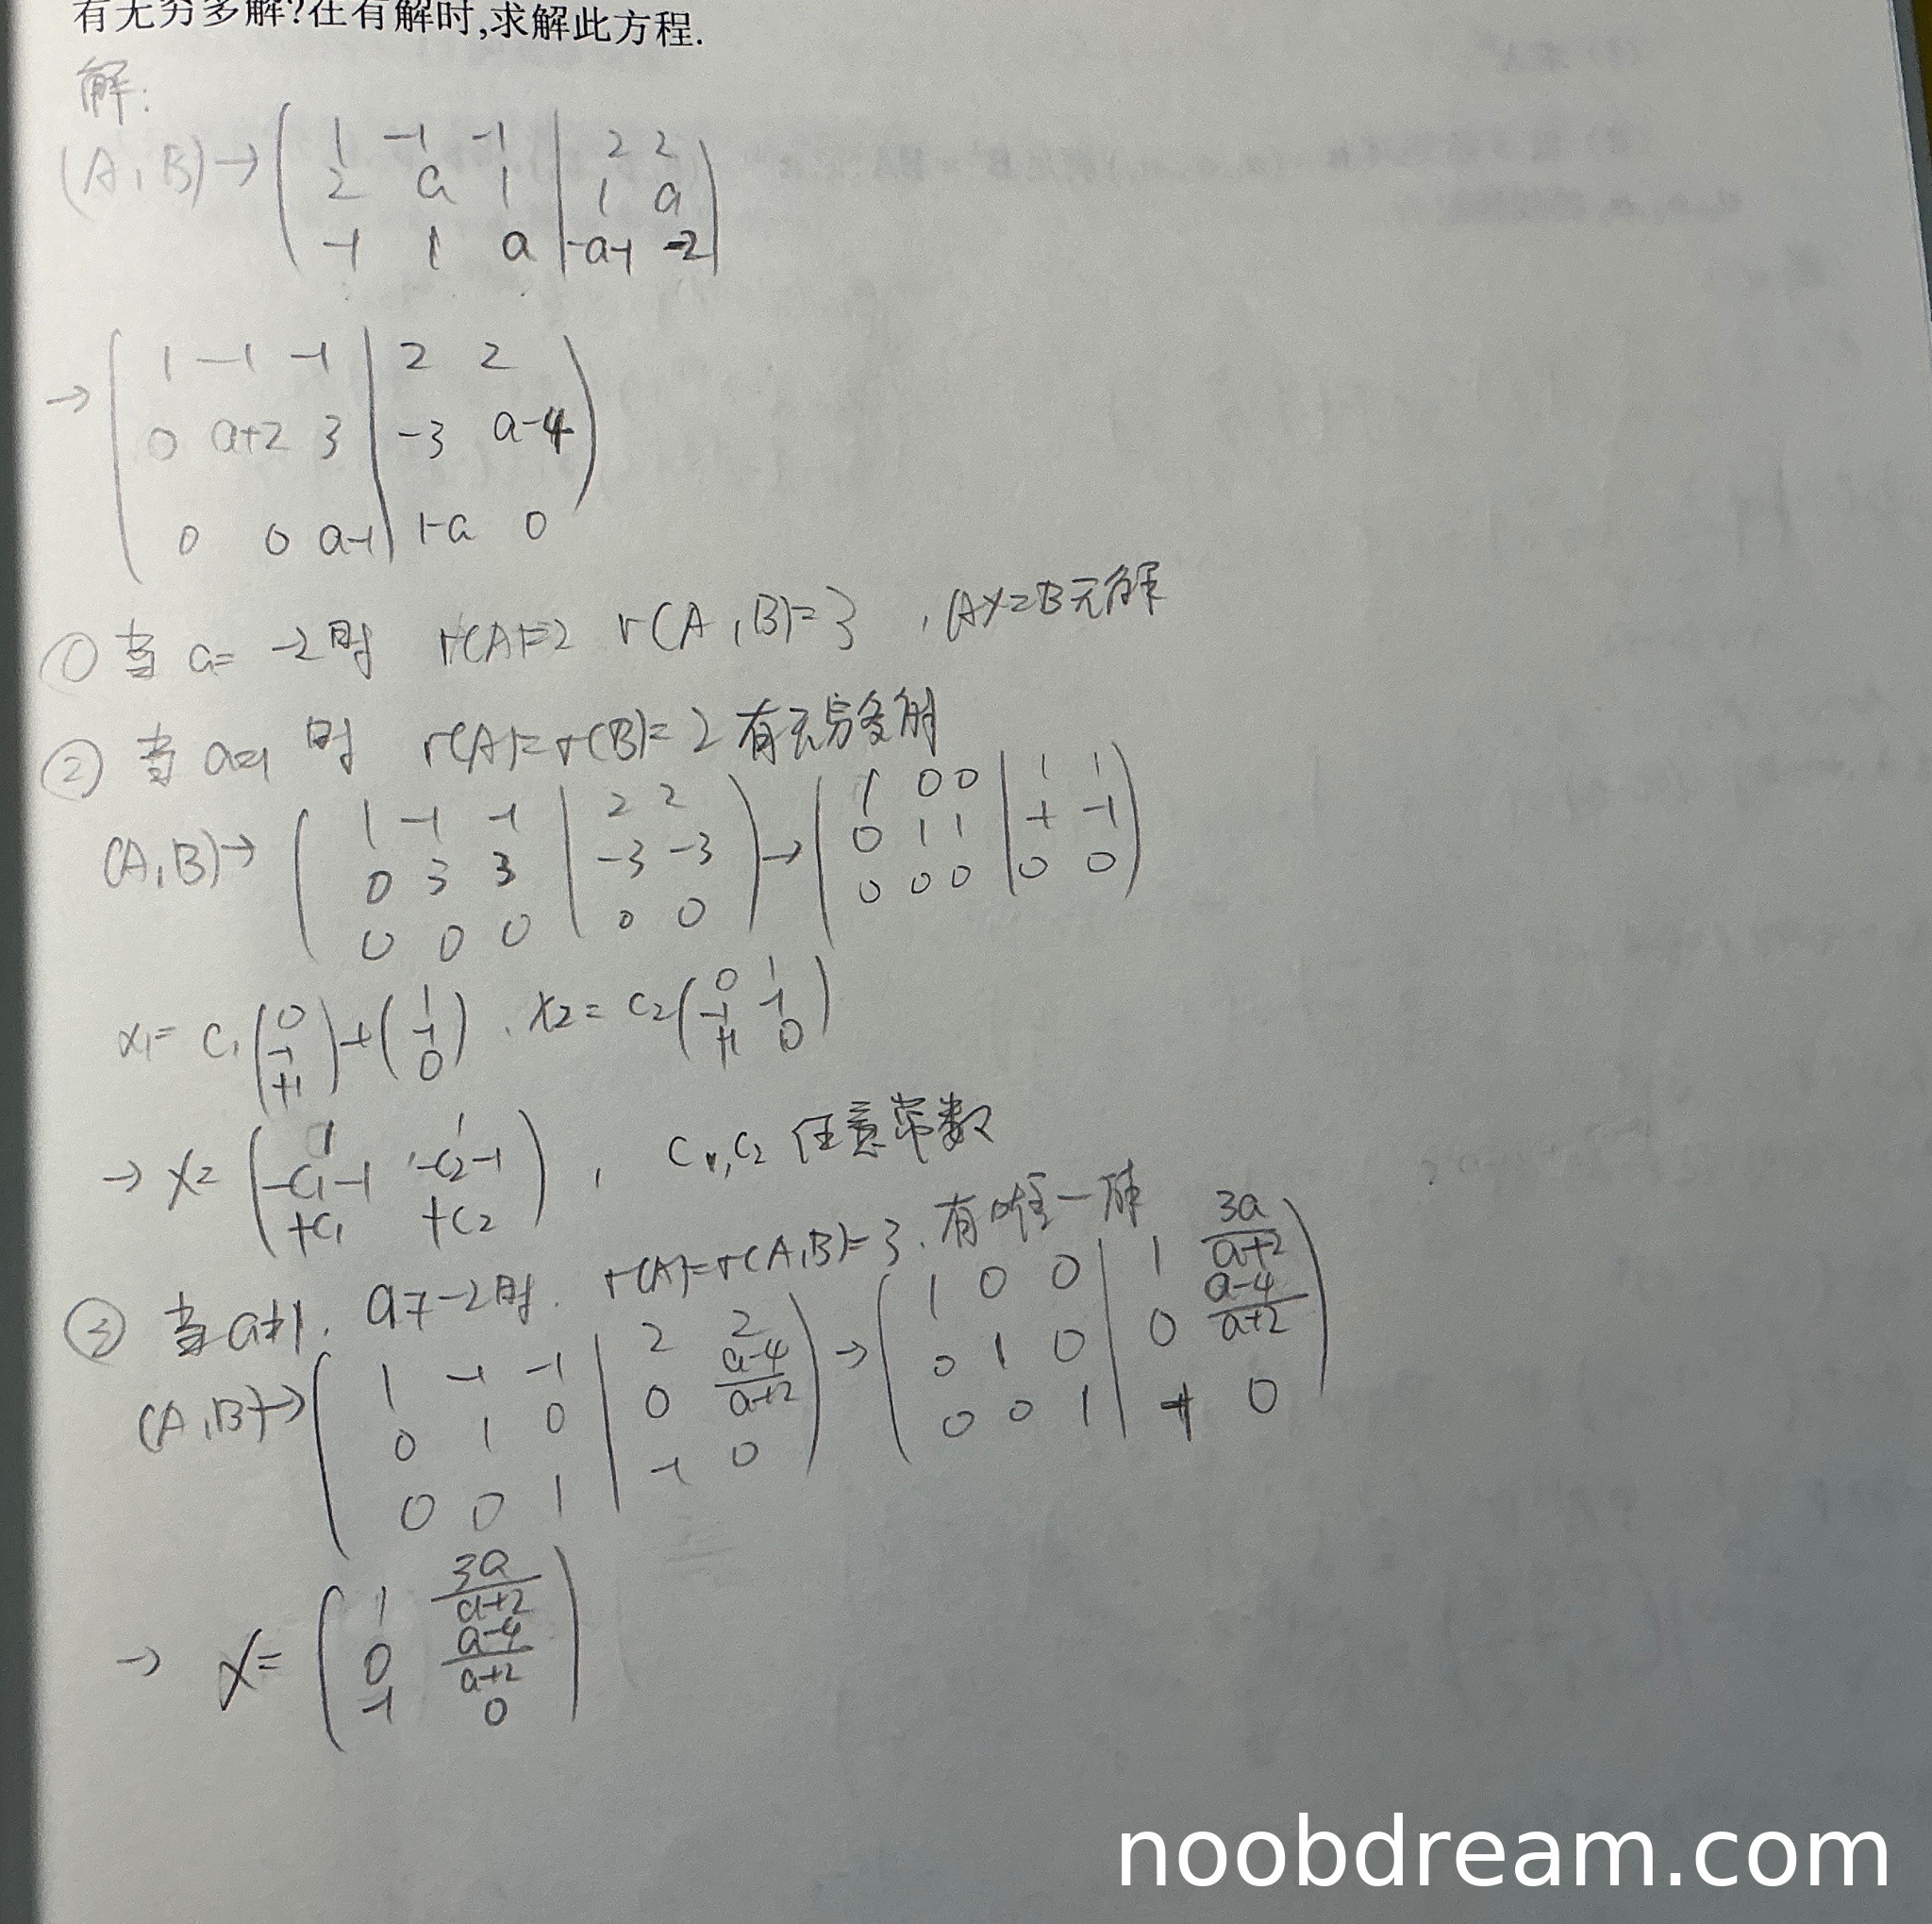 有无穷多解?在有解时,求解此方程.
解:
(A,B)→(1 -1 -1 | 2 2
2 a 1 | 1 a
-1 1 a | -a-1 -2)
→(1 -1 -1 | 2 2
0 a+2 3 | -3 a-4
0 0 a-1 | 1-a 0)
① 当 a= -2时 r(A)=2 r(A,B)=3 , AX=B无解
② 当 a=1 时 r(A)=r(B)=2 有无穷多解
(A,B)→(1 -1 -1 | 2 2
0 3 3 | -3 -3
0 0 0 | 0 0)→(1 0 0 | 1 1
0 1 1 | -1 -1
0 0 0 | 0 0)
x1= C1(0
-1
+1)+(1
-1
0) , x2= C2(0 1
-1 -1
+1 0)
→ X= (1 1
-C1-1 -C2-1
+C1 +C2) , C1,C2 任意常数
③ 当a≠1, a≠-2时. r(A)=r(A,B)=3. 有唯一解
(A,B)→(1 -1 -1 | 2 2
0 1 0 | 0 a-4/a+2
0 0 1 | -1 0)→(1 0 0 | 1 3a/a+2
0 1 0 | 0 a-4/a+2
0 0 1 | -1 0)
→ X= (1 3a/a+2
0 a-4/a+2
-1 0)
noobdream.com